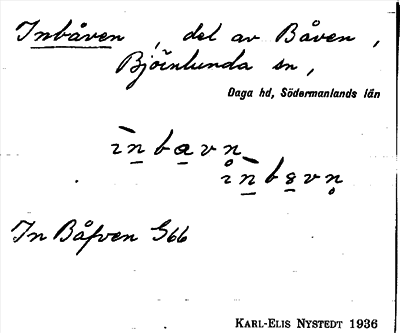 Inbåven , del av Båven ,
Björnlunda sn ,
Daga hd, Södermanlands län
In Båfven G66
KARL-ELIS NYSTEDT 1936